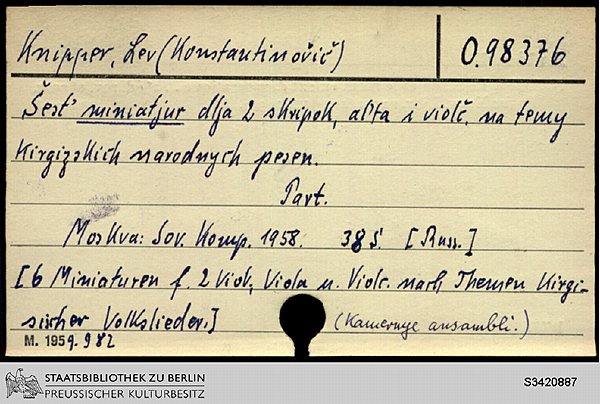 Knipper, Lev (Konstantinovič)
O.98376
Šest' miniatjur dlja 2 skripok, al'ta i violč. na temy
kirgizskich narodnych pesen.
Part.
Moskva: Sov. Komp. 1958. 38 S. [Russ.]
[6 Miniaturen f. 2 Viol., Viola u. Violc. nach Themen Kirgi-
sischer Volkslieder.]
(Kamernye ansambli.)
M. 1959.982
STAATSBIBLIOTHEK ZU BERLIN
PREUSSISCHER KULTURBESITZ
S3420887